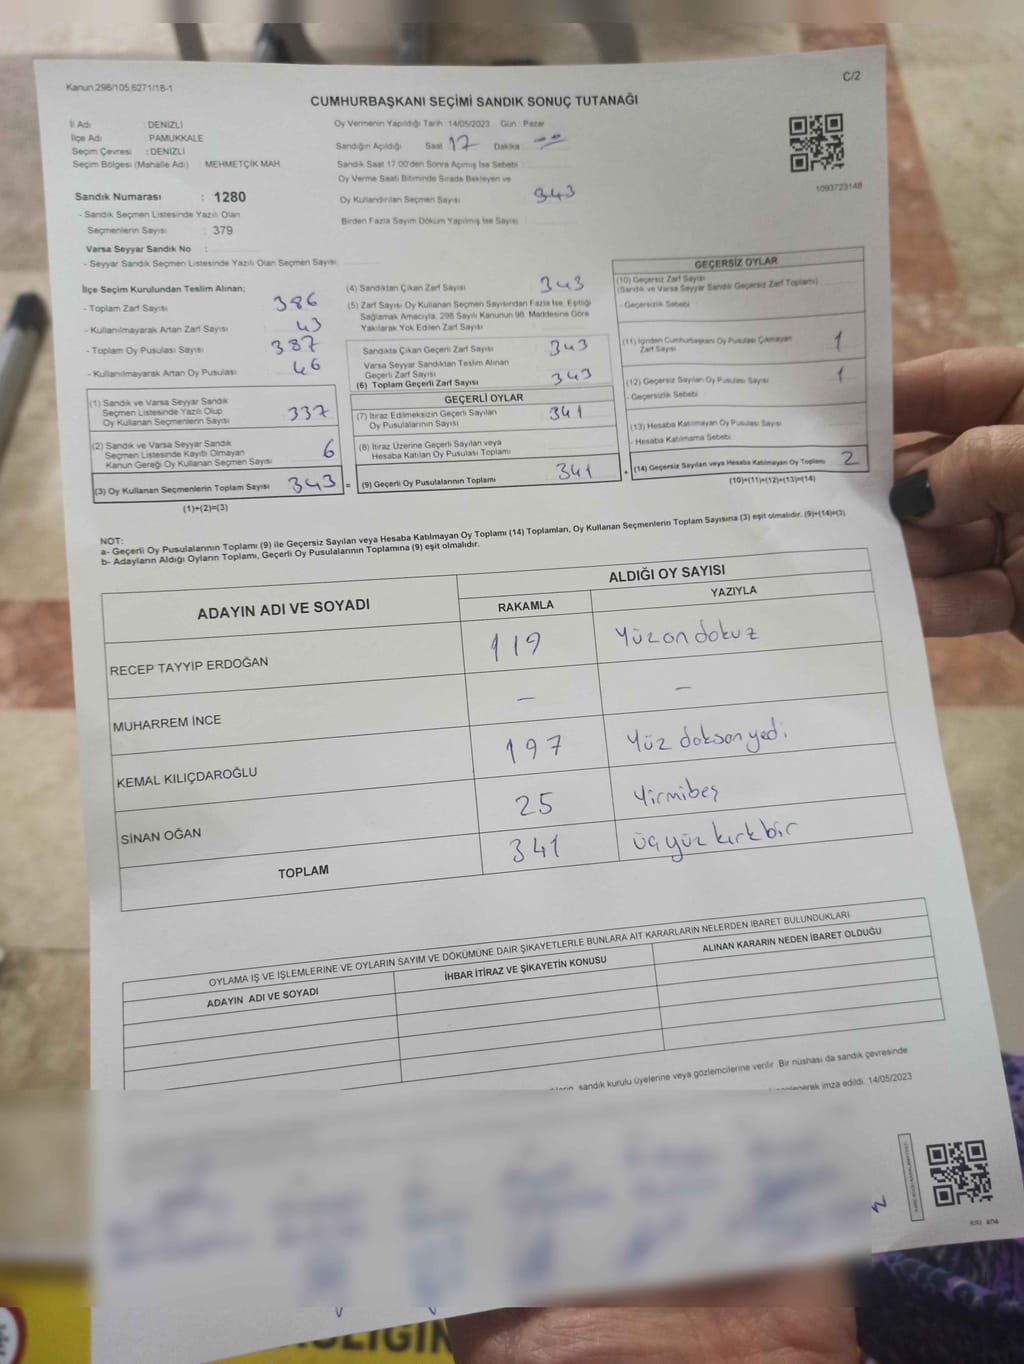 Kanun:298/105,6271/18-1
C/2
CUMHURBAŞKANI SEÇİMİ SANDIK SONUÇ TUTANAĞI
İl Adı : DENİZLİ
İlçe Adı : PAMUKKALE
Seçim Çevresi : DENİZLİ
Seçim Bölgesi (Mahalle Adı) : MEHMETÇİK MAH
Sandık Numarası : 1280
- Sandık Seçmen Listesinde Yazılı Olan
Seçmenlerin Sayısı : 379
Varsa Seyyar Sandık No :
- Seyyar Sandık Seçmen Listesinde Yazılı Olan Seçmen Sayısı
Oy Vermenin Yapıldığı Tarih :14/05/2023 Gün : Pazar
Sandığın Açıldığı Saat 17 Dakika
Sandık Saat 17:00'den Sonra Açılmış İse Sebebi
Oy Verme Saati Bitiminde Sırada Bekleyen ve
Oy Kullandırılan Seçmen Sayısı 343
Birden Fazla Sayım Döküm Yapılmış İse Sayısı
1093723148
İlçe Seçim Kurulundan Teslim Alınan;
- Toplam Zarf Sayısı 386
- Kullanılmayarak Artan Zarf Sayısı 43
- Toplam Oy Pusulası Sayısı 387
- Kullanılmayarak Artan Oy Pusulası 46
(1) Sandık ve Varsa Seyyar Sandık
Seçmen Listesinde Yazılı Olup
Oy Kullanan Seçmenlerin Sayısı 337
(2) Sandık ve Varsa Seyyar Sandık
Seçmen Listesinde Kayıtlı Olmayan
Kanun Gereği Oy Kullanan Seçmen Sayısı 6
(3) Oy Kullanan Seçmenlerin Toplam Sayısı 343 =
(1)+(2)=(3)
(4) Sandıktan Çıkan Zarf Sayısı 343
(5) Zarf Sayısı Oy Kullanan Seçmen Sayısından Fazla İse, Eşitliği
Sağlamak Amacıyla, 298 Sayılı Kanunun 98. Maddesine Göre
Yakılarak Yok Edilen Zarf Sayısı
Sandıkta Çıkan Geçerli Zarf Sayısı 343
Varsa Seyyar Sandıktan Teslim Alınan
Geçerli Zarf Sayısı
(6) Toplam Geçerli Zarf Sayısı 343
GEÇERLİ OYLAR
(7) İtiraz Edilmeksizin Geçerli Sayılan
Oy Pusulalarının Sayısı 341
(8) İtiraz Üzerine Geçerli Sayılan veya
Hesaba Katılan Oy Pusulası Toplamı
(9) Geçerli Oy Pusulalarının Toplamı 341 +
GEÇERSİZ OYLAR
(10) Geçersiz Zarf Sayısı
(Sandık ve Varsa Seyyar Sandık Geçersiz Zarf Toplamı)
- Geçersizlik Sebebi
(11) İçinden Cumhurbaşkanı Oy Pusulası Çıkmayan
Zarf Sayısı 1
(12) Geçersiz Sayılan Oy Pusulası Sayısı 1
- Geçersizlik Sebebi
(13) Hesaba Katılmayan Oy Pusulası Sayısı
- Hesaba Katılmama Sebebi
(14) Geçersiz Sayılan veya Hesaba Katılmayan Oy Toplamı 2
(10)+(11)+(12)+(13)=(14)
NOT:
a- Geçerli Oy Pusulalarının Toplamı (9) ile Geçersiz Sayılan veya Hesaba Katılmayan Oy Toplamı (14) Toplamları, Oy Kullanan Seçmenlerin Toplam Sayısına (3) eşit olmalıdır. (9)+(14)=(3)
b- Adayların Aldığı Oyların Toplamı, Geçerli Oy Pusulalarının Toplamına (9) eşit olmalıdır.
ADAYIN ADI VE SOYADI
ALDIĞI OY SAYISI
RAKAMLA YAZIYLA
RECEP TAYYİP ERDOĞAN 119 Yüzondokuz
MUHARREM İNCE – –
KEMAL KILIÇDAROĞLU 197 Yüz doksanyedi
SİNAN OĞAN 25 Yirmibeş
TOPLAM 341 üçyüz kırkbir
OYLAMA İŞ VE İŞLEMLERİNE VE OYLARIN SAYIM VE DÖKÜMÜNE DAİR ŞİKAYETLERLE BUNLARA AİT KARARLARIN NELERDEN İBARET BULUNDUKLARI
ADAYIN ADI VE SOYADI İHBAR İTİRAZ VE ŞİKAYETİN KONUSU ALINAN KARARIN NEDEN İBARET OLDUĞU
sandık kurulu üyelerine veya gözlemcilerine verilir. Bir nüshası da sandık çevresinde
imza edildi. 14/05/2023